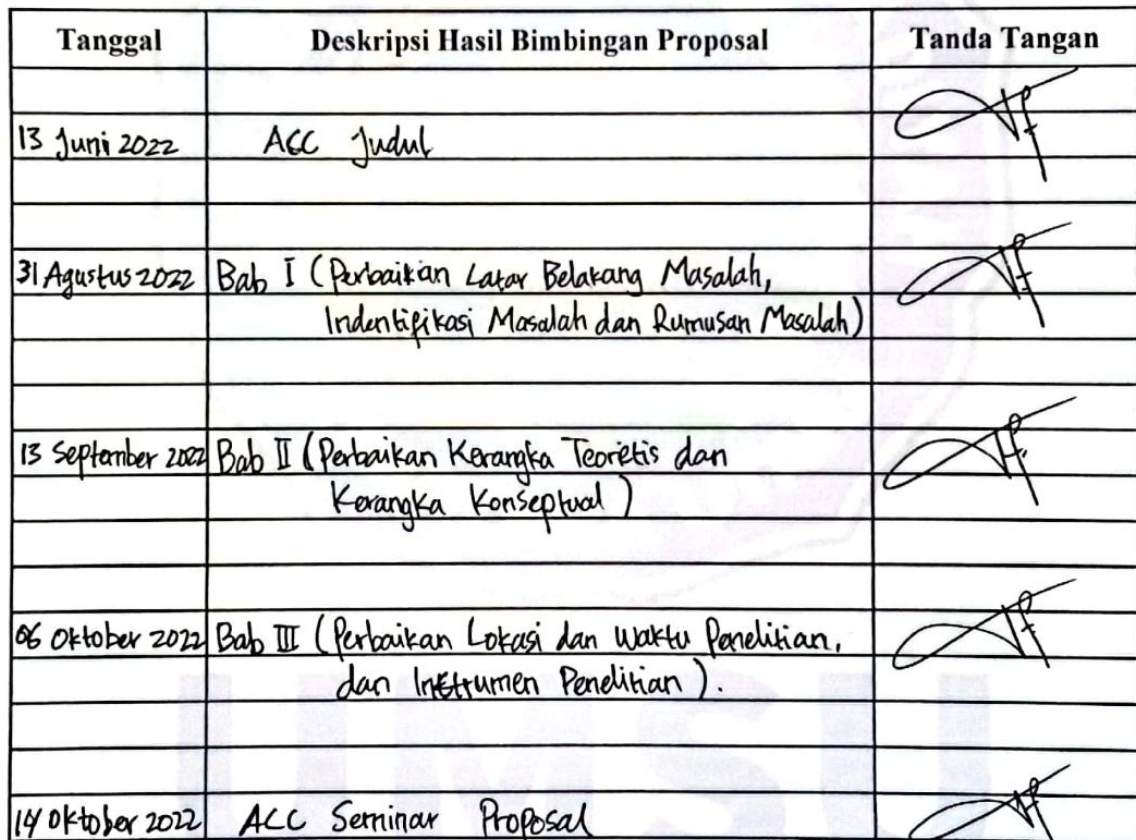 Tanggal Deskripsi Hasil Bimbingan Proposal Tanda Tangan
13 Juni 2022 ACC Judul
31 Agustus 2022 Bab I (Perbaikan Latar Belakang Masalah,
Indentifikasi Masalah dan Rumusan Masalah)
13 September 2022 Bab II (Perbaikan Kerangka Teoretis dan
Kerangka Konseptual)
06 Oktober 2022 Bab III (Perbaikan Lokasi dan Waktu Penelitian,
dan Instrumen Penelitian).
14 Oktober 2022 ACC Seminar Proposal
UMSU